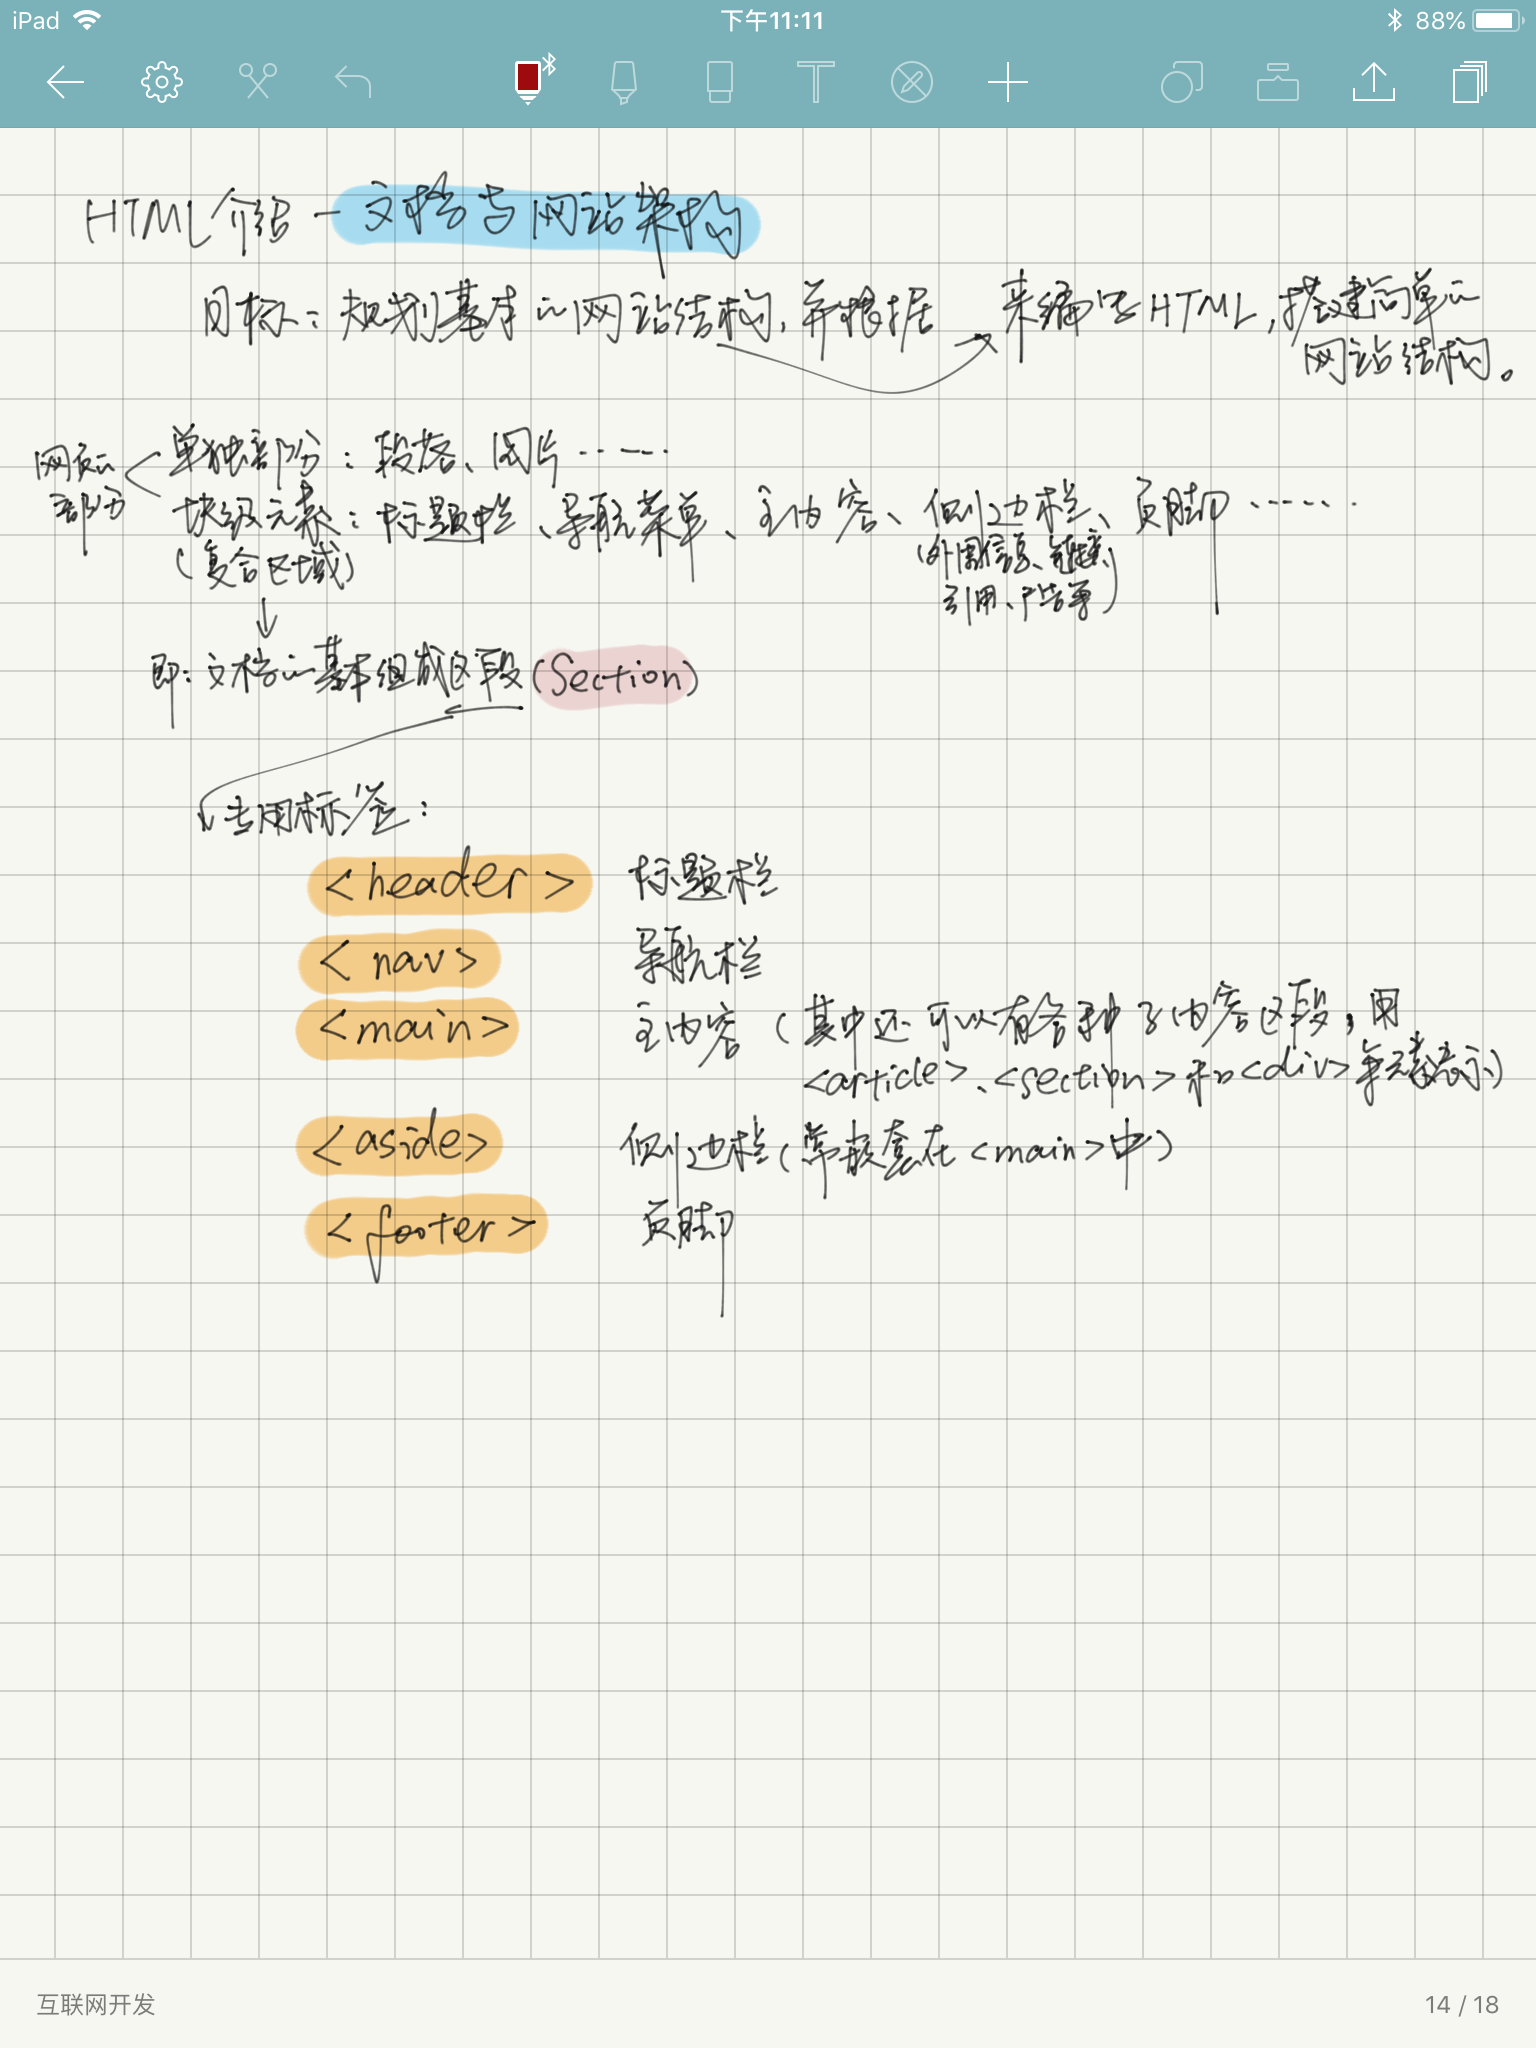 iPad 下午11:11 88%
HTML介绍 - 文档与网站架构
目标：规划基本的网站结构，并根据 来编写HTML，搭建简单的
网站结构。
网页的部分
单独部分：段落、图片……
块级元素：标题栏、导航菜单、主内容、侧边栏、页脚……
(复合区域)
(外围信息、链接、
引用、广告等)
即：文档的基本组成区段(Section)
专用标签：
<header> 标题栏
<nav> 导航栏
<main> 主内容 (其中还可以有各种子内容区段，用
<article>、<section>和<div>等元素表示)
<aside> 侧边栏(常嵌套在<main>中)
<footer> 页脚
互联网开发 14 / 18